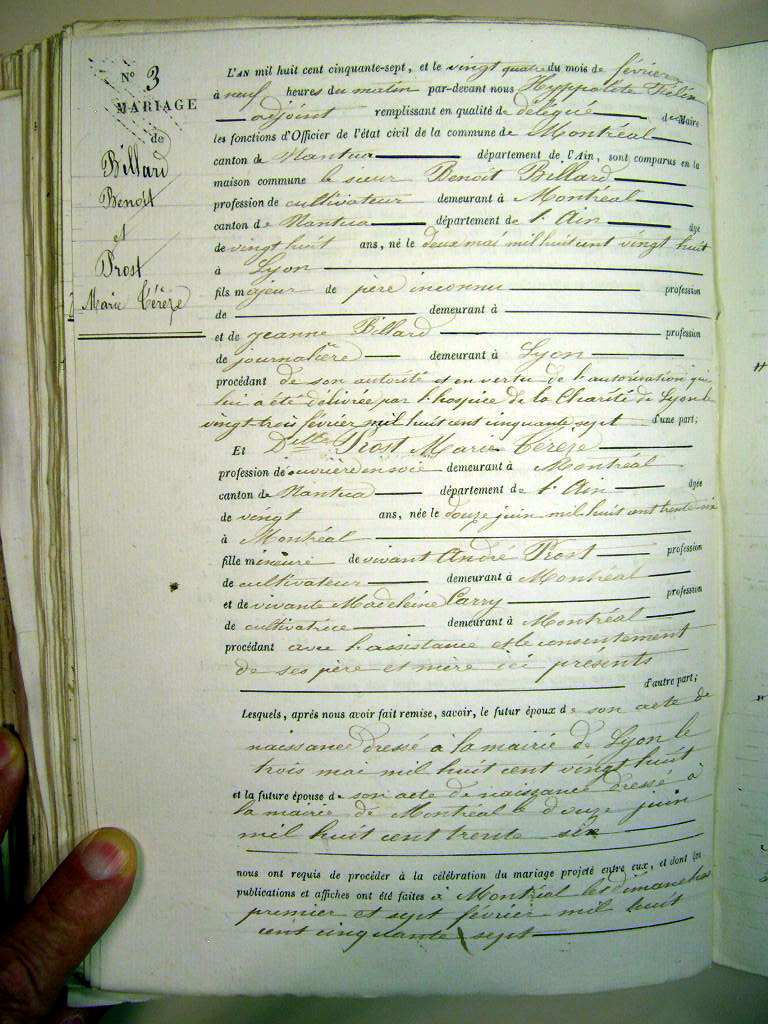 N° 3
MARIAGE
de
Billard
Benoit
et
Prost
Marie Térèze
L'AN mil huit cent cinquante-sept, et le vingt quatre du mois de février
à neuf heures du matin par-devant nous Hyppolite
adjoint remplissant en qualité de délégué de Maire
les fonctions d'Officier de l'état civil de la commune de Montréal
canton de Nantua département de l'Ain, sont comparus en la
maison commune le sieur Benoit Billard
profession de cultivateur demeurant à Montréal
canton de Nantua département de l'Ain âge
de vingt huit ans, né le deux mai mil huit cent vingt huit
à Lyon
fils majeur de père inconnu profession
de demeurant à
et de Jeanne Billard profession
de journalière demeurant à Lyon
procédant de son autorité et en vertu de l'autorisation qui
lui a été délivrée par l'hospice de la Charité de Lyon le
vingt trois février mil huit cent cinquante sept d'une part;
Et Dlle Prost Marie Térèze
profession de ouvrière en soie demeurant à Montréal
canton de Nantua département de l'Ain âgée
de vingt ans, née le douze juin mil huit cent trente six
à Montréal
fille mineure de vivant André Prost profession
de cultivateur demeurant à Montréal
et de vivante Madeleine Carry profession
de cultivatrice demeurant à Montréal
procédant avec l'assistance et le consentement
de ses père et mère ici présents
d'autre part;
Lesquels, après nous avoir fait remise, savoir, le futur époux de son acte de
naissance dressé à la mairie de Lyon le
trois mai mil huit cent vingt huit
et la future épouse de son acte de naissance dressé à
la mairie de Montréal le douze juin
mil huit cent trente six
nous ont requis de procéder à la célébration du mariage projeté entre eux, et dont les
publications et affiches ont été faites à Montréal les dimanches
premier et sept février mil huit
cent cinquante sept